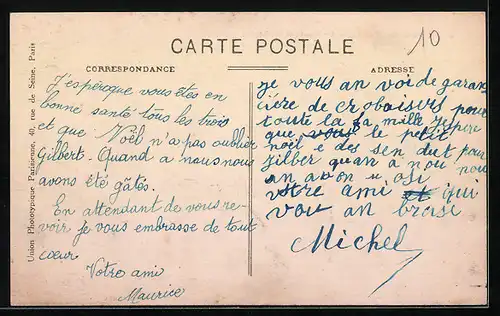 CARTE POSTALE
10
CORRESPONDANCE
ADRESSE
Union Phototypique Parisienne, 40, rue de Seine, Paris
J'espère que vous êtes en
bonne santé tous les trois
et que Noël n'a pas oublier
Gilbert. Quand a nous nous
avons été gâtés.
En attendant de vous re-
voir je vous embrasse de tout
cœur
Votre ami
Maurice
je vous an voi de garan
cière de
toute la fa mille jespere
que vous le petit
noël e des sen dut pour
jilber quan à nou nou
an avon u osi
votre ami et qui
vou an brase
Michel